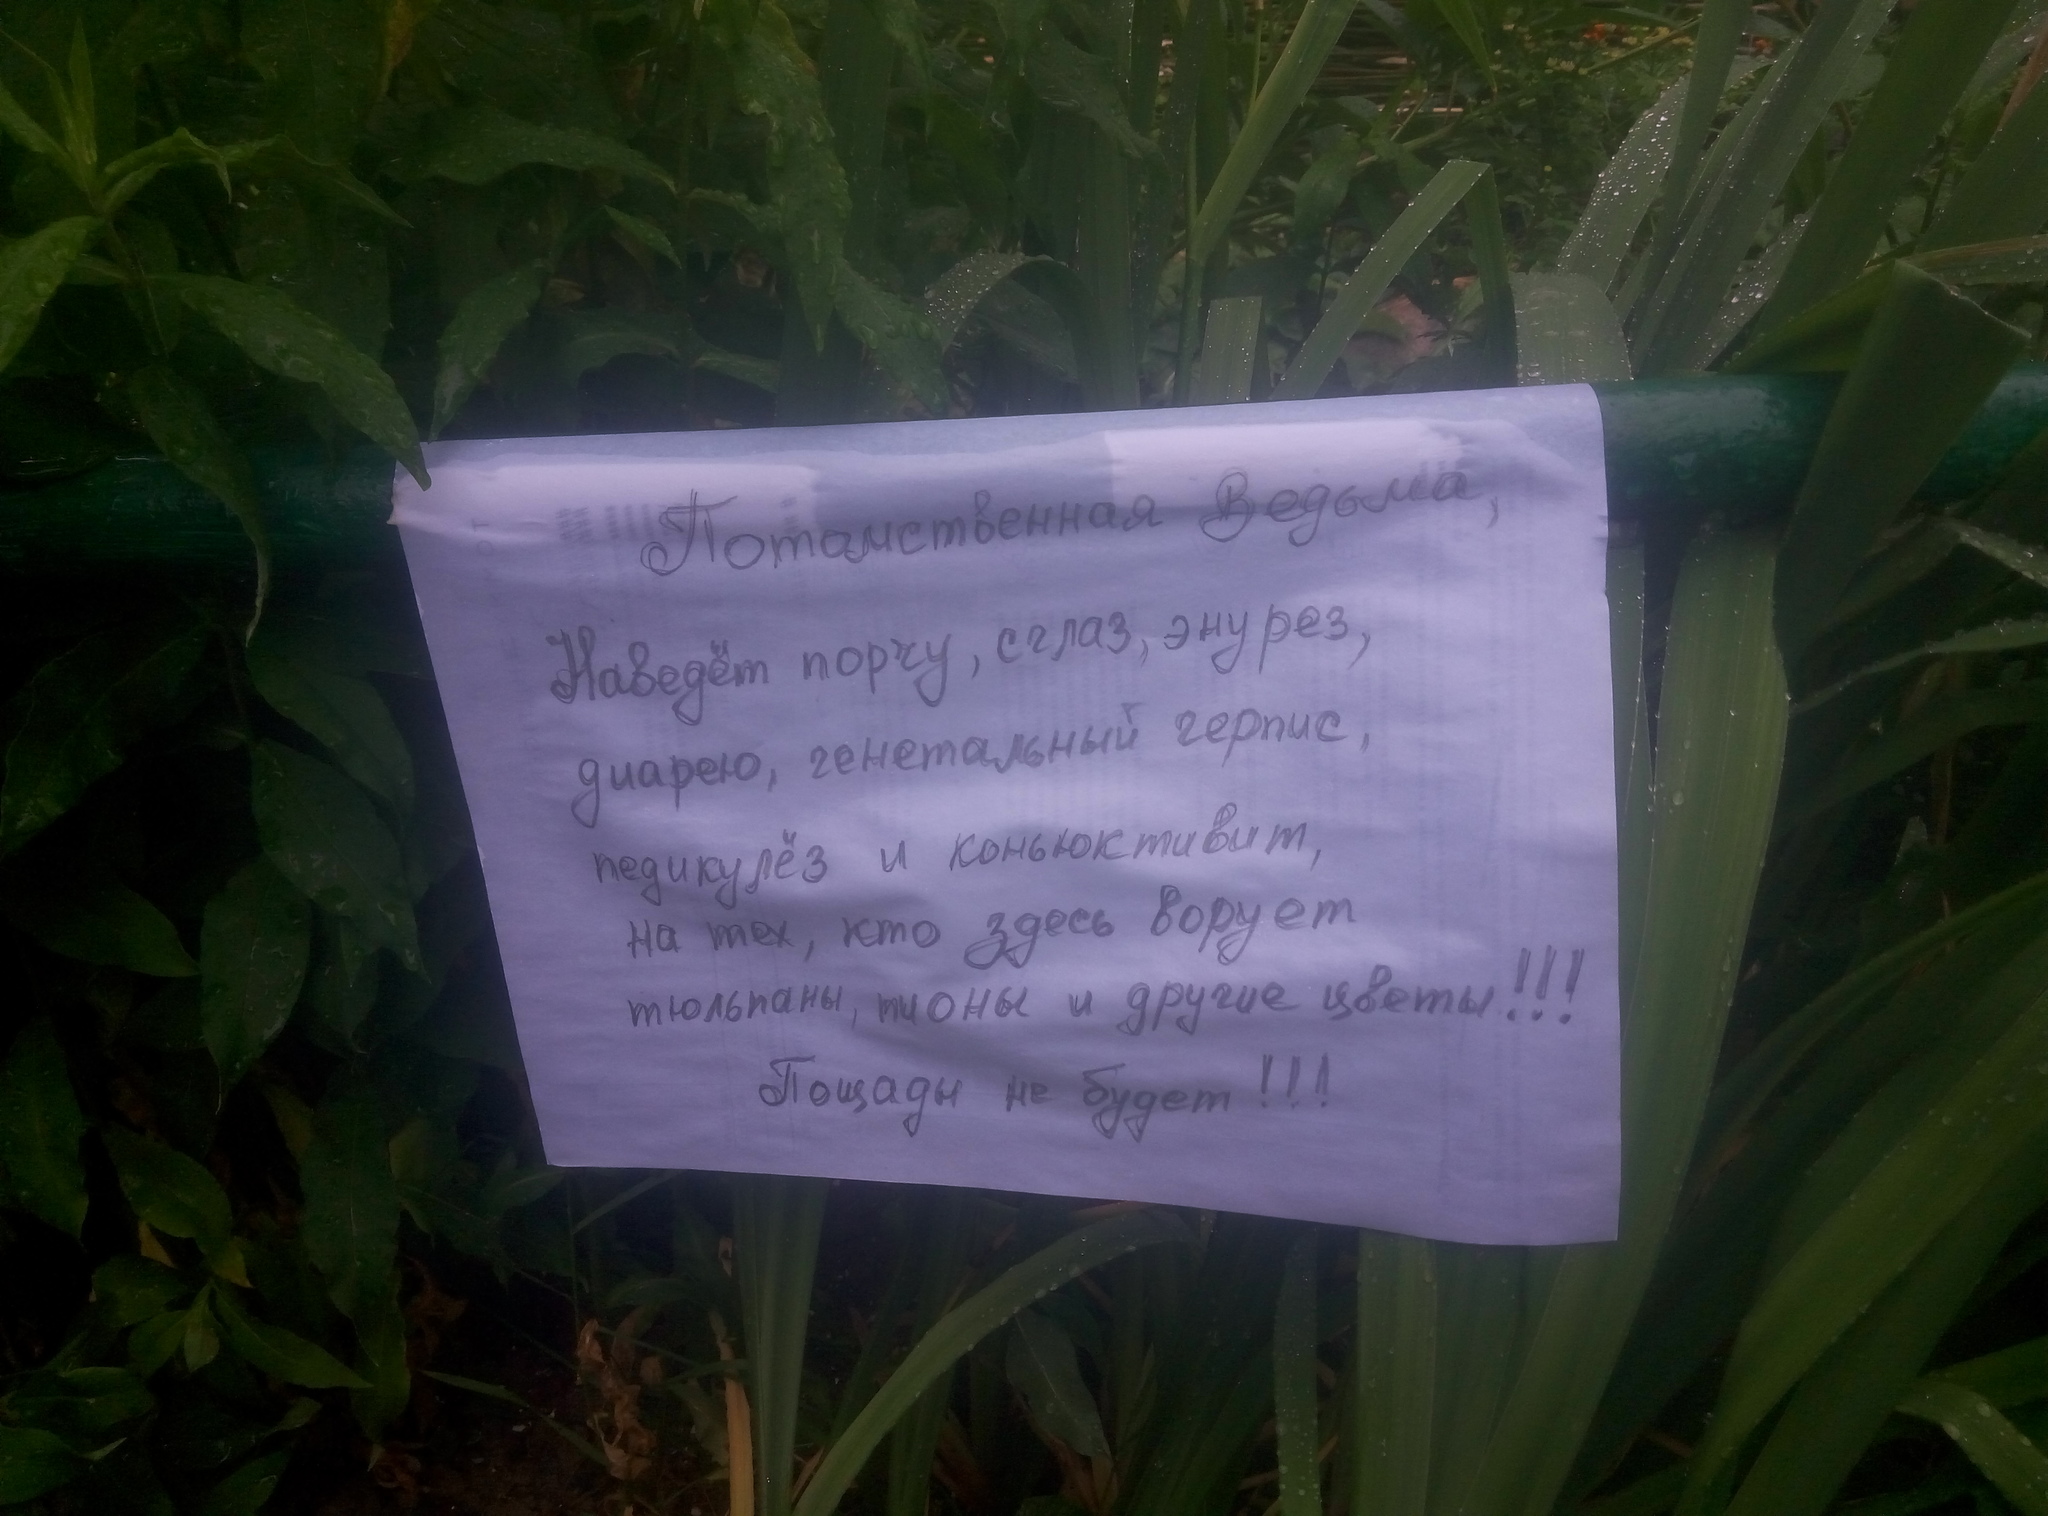 Потомственная Ведьма,
Наведёт порчу, сглаз, энурез,
диарею, генетальный герпис,
педикулёз и коньюктивит,
на тех, кто здесь ворует
тюльпаны, пионы и другие цветы!!!
Пощады не будет!!!